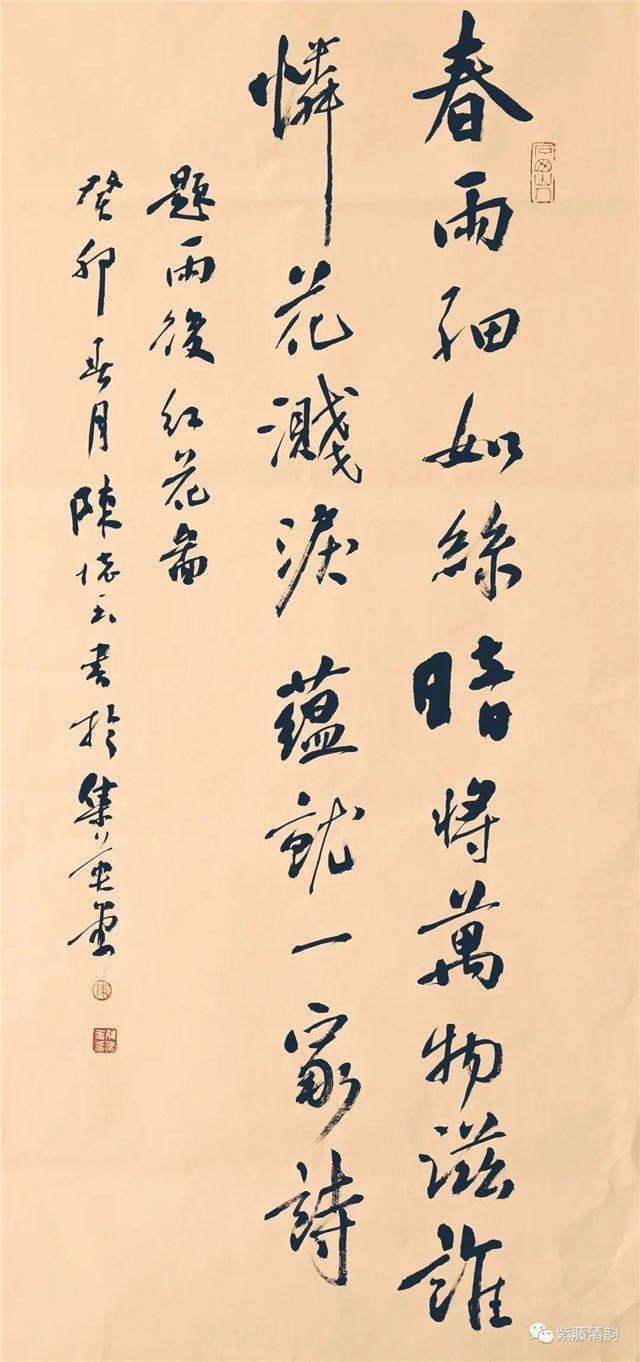 春雨細如絲暗將萬物滋誰
憐花濺淚蘊就一家詩
題雨後紅花圖
癸卯春月陳玉書於集英堂
紫藤清韵